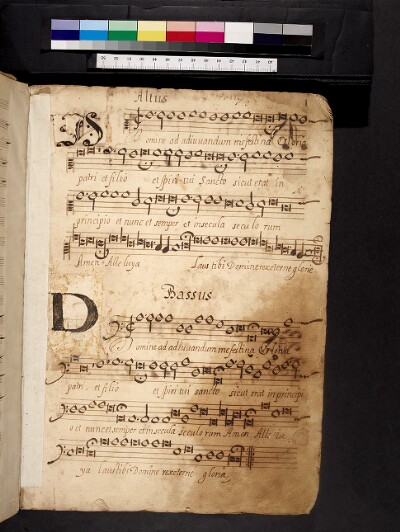 Altus
Domine ad adiuvandum me festina Gloria
patri et filio et spiri tui Sancto sicut erat in
principio et nunc et semper et in secula seculo rum
Amen Alleluya Laus tibi Domine rex eterne glorie
Bassus
Domine ad adiuvandum me festina Gloria
patri et filio et spiri tui sancto sicut erat in principi
o et nunc et semper et in secula seculo rum Amen Alle lu
ya laus tibi Domine rex eterne glorie